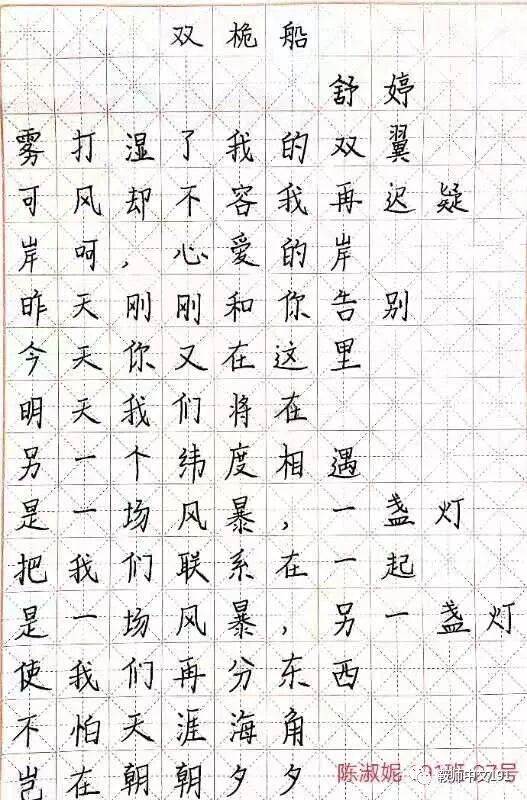 双桅船
舒婷
雾打湿了我的双翼
可风却不容我再迟疑
岸呵，心爱的岸
昨天刚刚和你告别
今天你又在这里
明天我们将在
另一个纬度相遇
是一场风暴，一盏灯
把我们联系在一起
是一场风暴，另一盏灯
使我们再分东西
不怕天涯海角
岂在朝朝夕夕
陈淑妮 班 07号